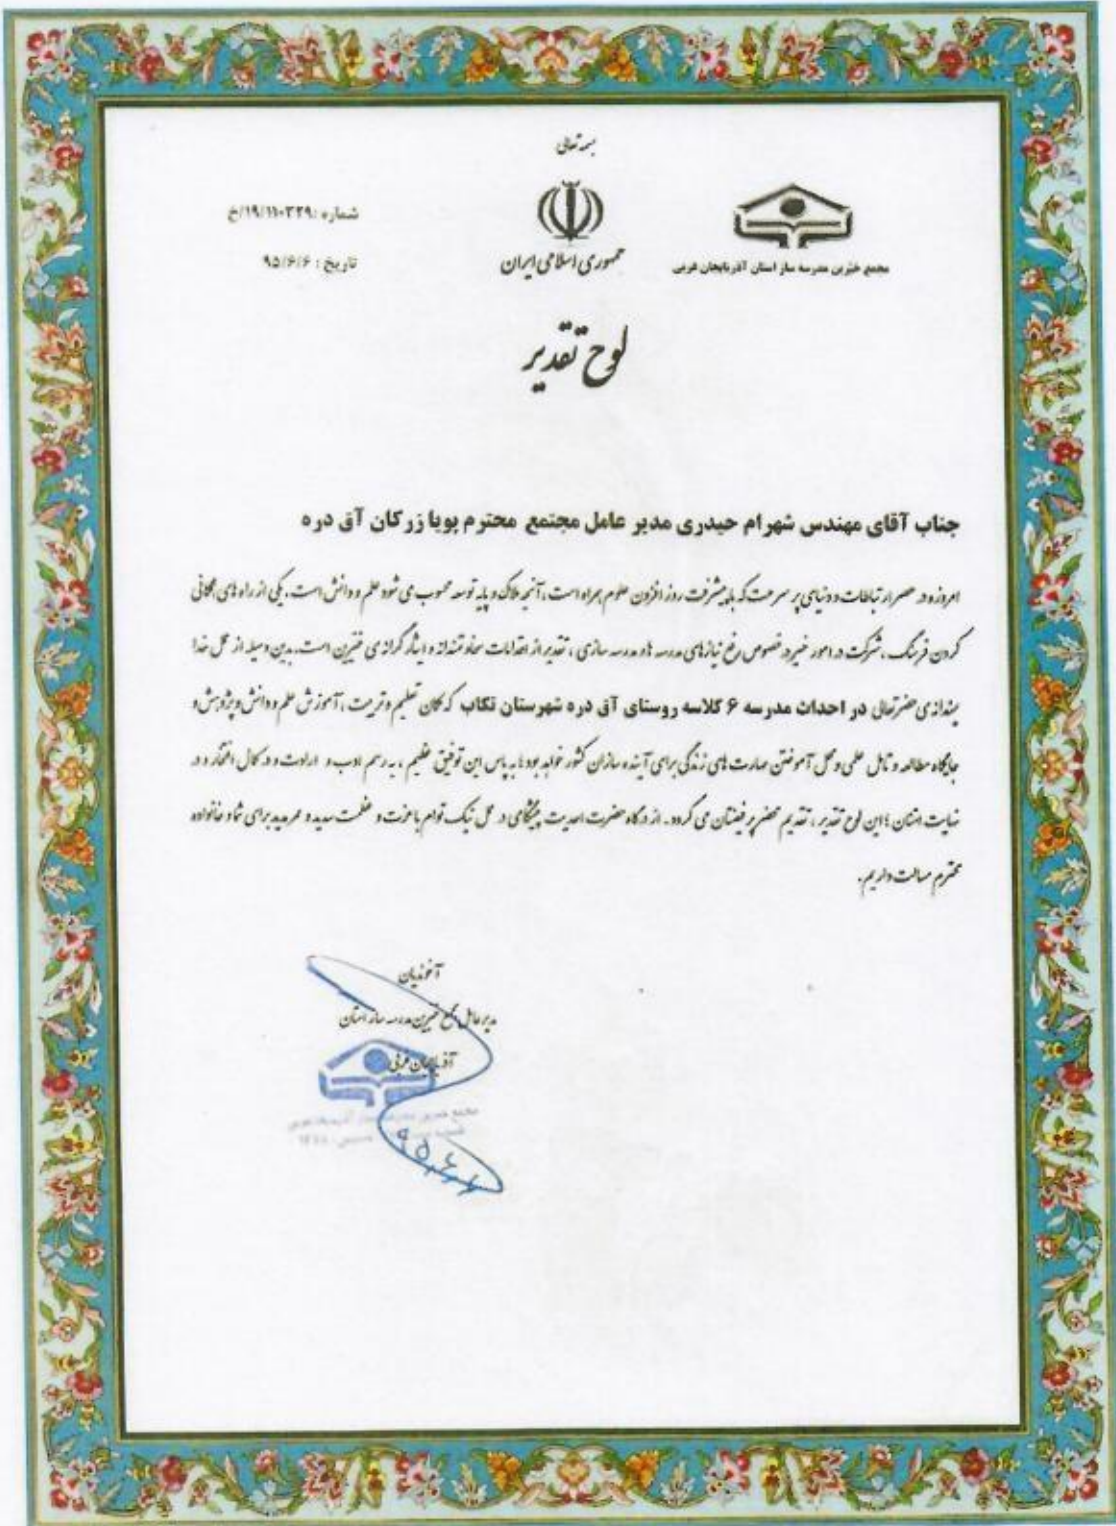 بسمه تعالی
جمهوری اسلامی ایران
مجمع خیّرین مدرسه ساز استان آذربایجان غربی
شماره :۱۹/۱۱۰۳۲۹/خ
تاریخ : ۹۵/۶/۶
لوح تقدیر
جناب آقای مهندس شهرام حیدری مدیر عامل مجتمع محترم پویا زرکان آق دره
امروزه در عصر ارتباطات و دنیای پر سرعت که با پیشرفت روز افزون علوم همراه است، آنچه ملاک و پایه توسعه محسوب می شود علم و دانش است. یکی از راه های همگانی
کردن فرهنگ، شرکت در امور خیر در خصوص رفع نیازهای مدرسه ها و مدرسه سازی، تقدیر از اقدامات سخاوتمندانه و ایثار گرانه ی خیّرین است. بدین وسیله از عمل خدا
پسندانه ی حضرتعالی در احداث مدرسه ۶ کلاسه روستای آق دره شهرستان تکاب که مکان تعلیم و تربیت، آموزش علم و دانش و پژوهش و
جایگاه مطالعه و تامل علمی و محل آموختن مهارت های زندگی برای آینده سازان کشور خواهد بود به پاس این توفیق عظیم، به رسم ادب و ارادت و در کمال افتخار و در
نهایت امتنان با این لوح تقدیر، تقدیم محضر پر فیضتان می گردد. از درگاه حضرت احدیت پیشگامی در عمل نیک توام با عزت و عظمت مدید و عمر مدید برای شما و خانواده
محترم مسالت داریم.
آخوندیان
مدیرعامل مجمع خیّرین مدرسه ساز استان
آذربایجان غربی
۹۵،۶،۶